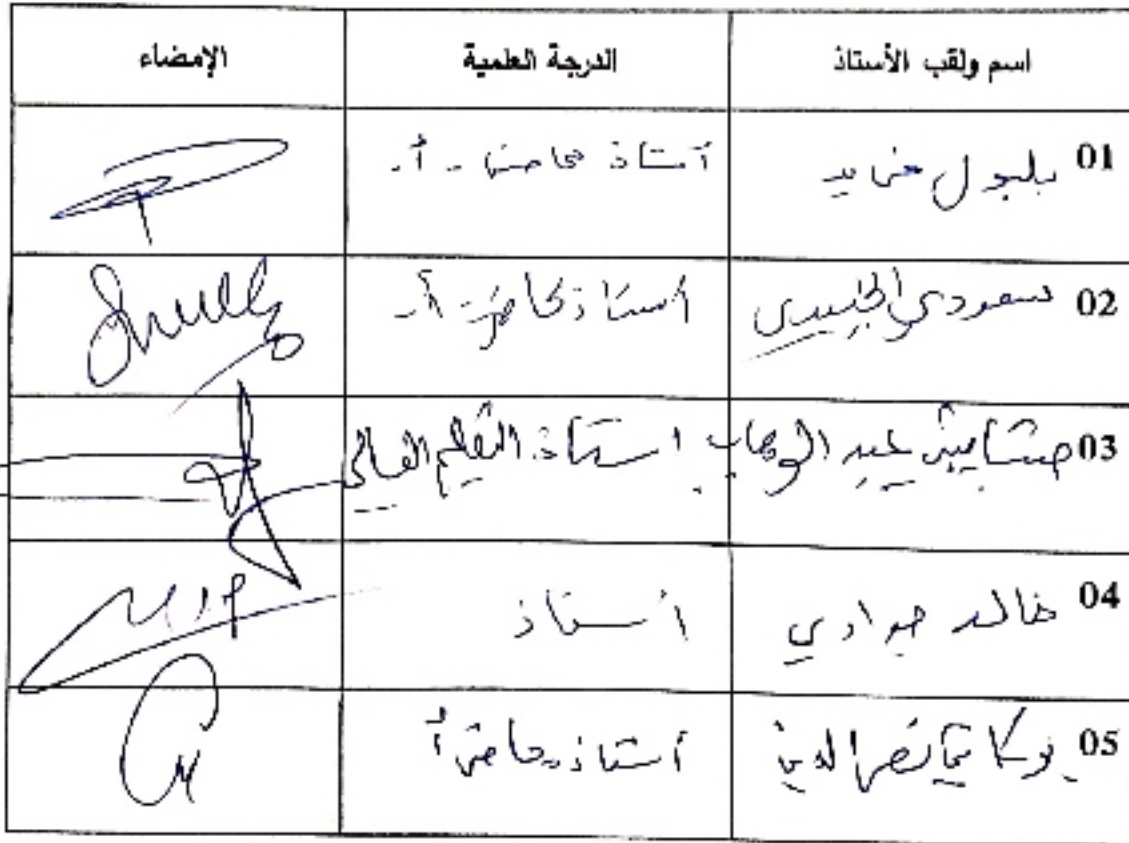 اسم ولقب الأستاذ الدرجة العلمية الإمضاء
01 بلبول أستاذ محاضر - أ -
02 سعودي أستاذ محاضر - أ -
03 عبد الوهاب استاذ التعليم العالي
04 خالد جوادي أستاذ
05 نصر الدين أستاذ محاضر أ